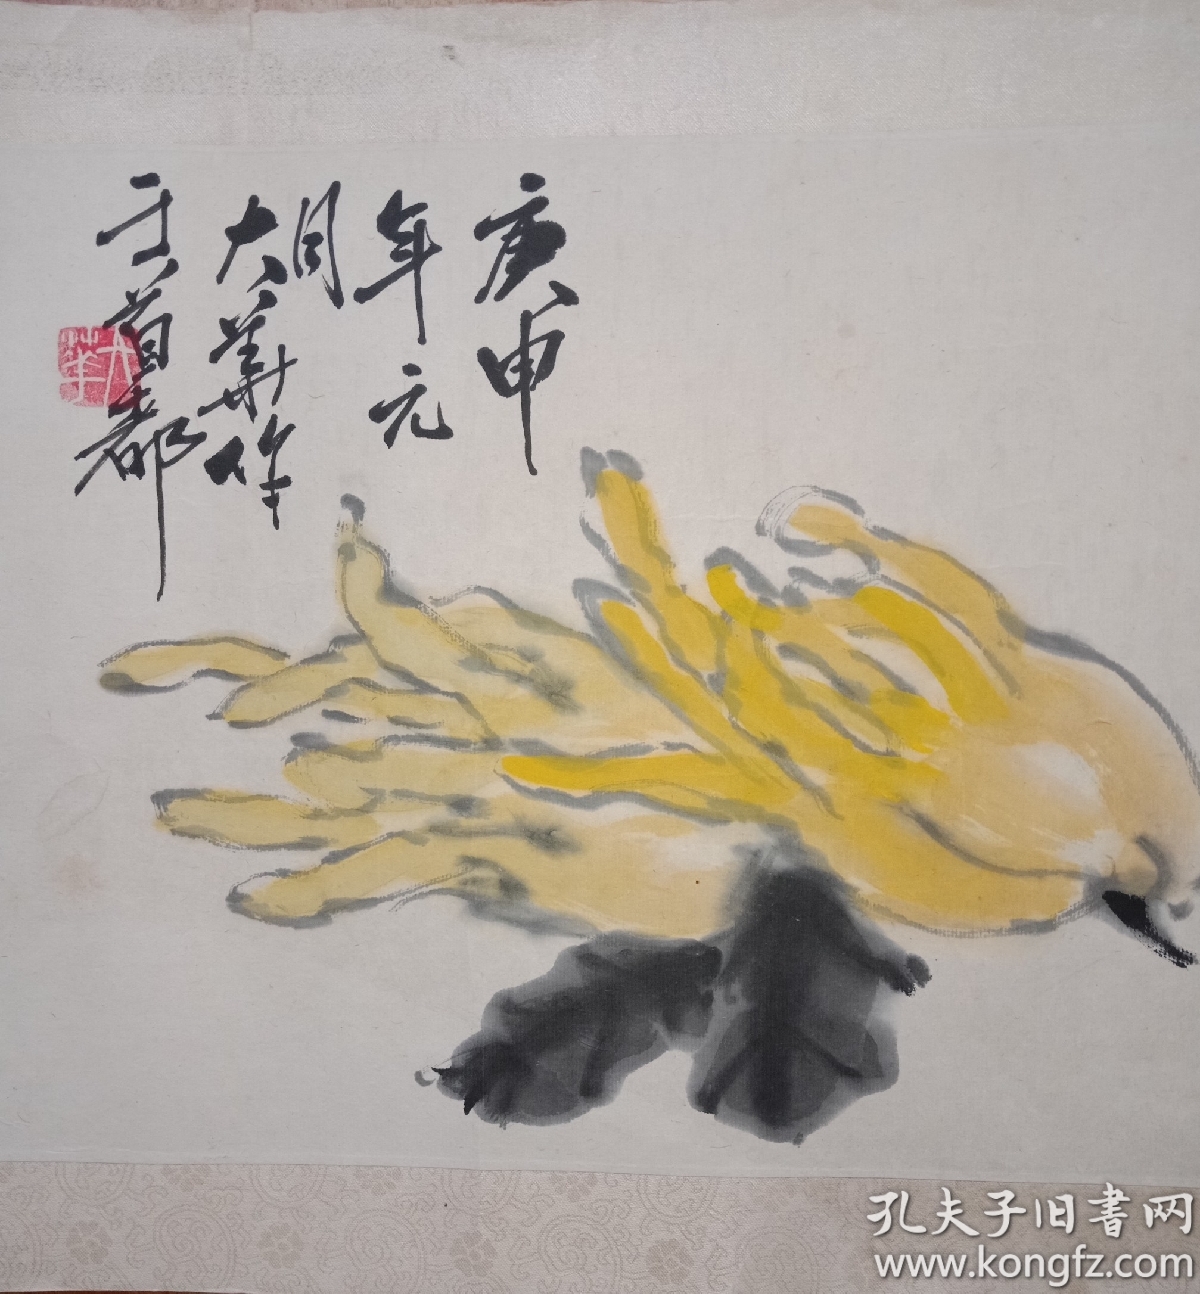 庚申
年元
月
大華作
于首都
大华
孔夫子旧書网
www.kongfz.com